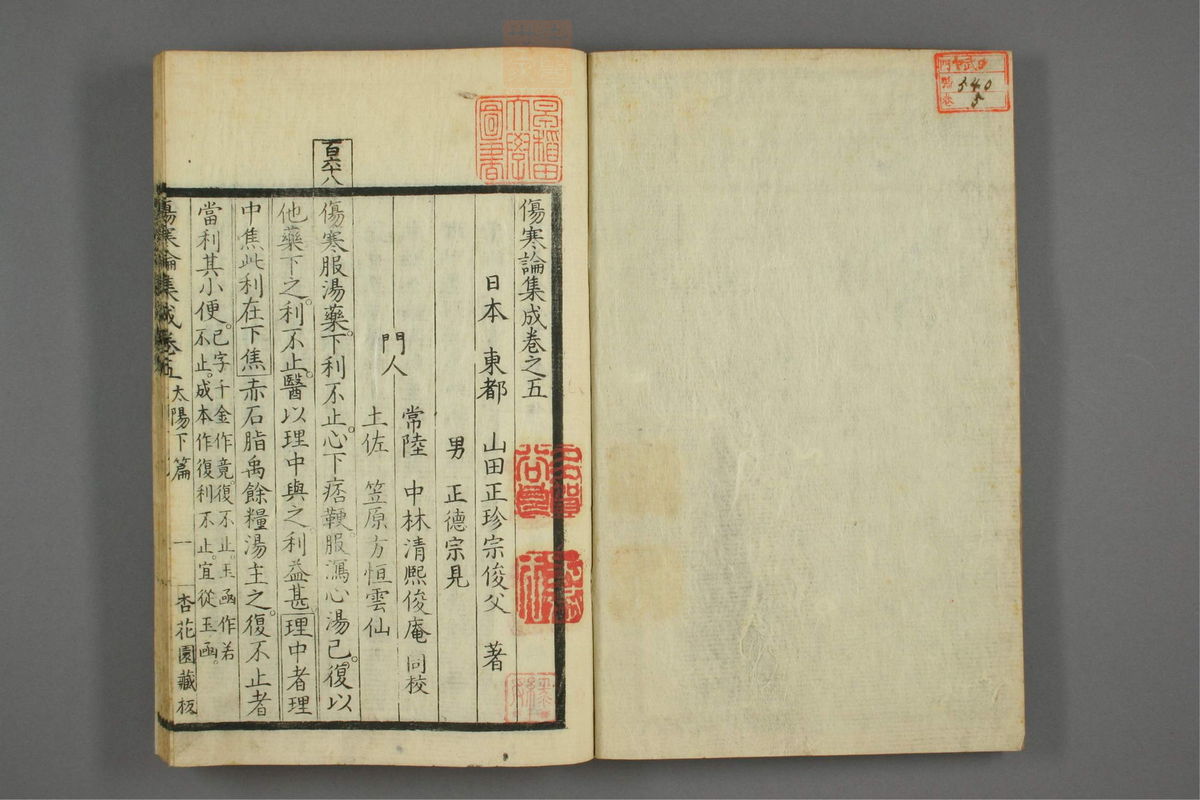 門
號 540
卷 5
早稻田
大學
圖書
百六十八
傷寒論集成卷之五
日本 東都 山田正珍宗俊父 著
男 正德宗見
常陸 中林清熙俊庵 同校
門人
土佐 笠原方恒雲仙
傷寒服湯藥。下利不止。心下痞鞕。服瀉心湯已。復以
他藥下之。利不止。醫以理中與之。利益甚。理中者理
中焦。此利在下焦。赤石脂禹餘糧湯主之。復不止者
當利其小便。已字千金作竟。復不止。玉函作若
不止。成本作復利不止。宜從玉函。
傷寒論集成卷五 太陽下篇 一 杏花園藏板